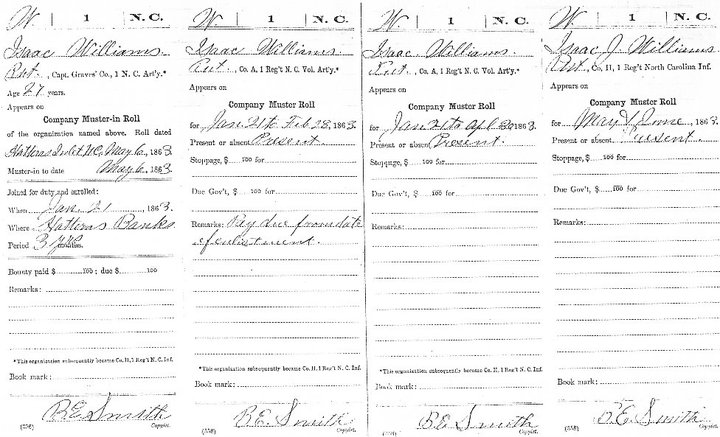 W | 1 | N. C.
Isaac Williams
Pvt., Capt. Graves' Co., 1 N. C. Art'y.*
Age 27 years.
Appears on
Company Muster-in Roll
of the organization named above. Roll dated
Hatteras Inlet, N.C. May 6, 1863.
Muster-in to date May 6, 1863
Joined for duty and enrolled:
When Jan. 21 1863.
Where Hatteras Banks
Period 3 yrs
Bounty paid $ 100; due $ 100
Remarks:
*This organization subsequently became Co. H, 1 Reg't N. C. Inf.
Book mark:
R. E. Smith
(356) Copyist.
W | 1 | N. C.
Isaac Williams
Pvt., Co. A, 1 Reg't N. C. Vol. Art'y.*
Appears on
Company Muster Roll
for Jan. 21 to Feb 28, 1863.
Present or absent Present.
Stoppage, $ 100 for
Due Gov't, $ 100 for
Remarks: Pay due from date
of enlistment.
*This organization subsequently became Co. H, 1 Reg't N. C. Inf.
Book mark:
R. E. Smith
(358) Copyist.
W | 1 | N. C.
Isaac Williams
Pvt., Co. A, 1 Reg't N. C. Vol. Art'y.*
Appears on
Company Muster Roll
for Jan 21 to Apl 30 1863.
Present or absent Present.
Stoppage, $ 100 for
Due Gov't, $ 100 for
Remarks:
*This organization subsequently became Co. H, 1 Reg't N. C. Inf.
Book mark:
R. E. Smith
(358) Copyist.
W | 1 | N. C.
Isaac J. Williams
Pvt., Co. H, 1 Reg't North Carolina Inf.
Appears on
Company Muster Roll
for May & June, 1863.
Present or absent Present.
Stoppage, $ 100 for
Due Gov't, $ 100 for
Remarks:
Book mark:
R. E. Smith
(358) Copyist.